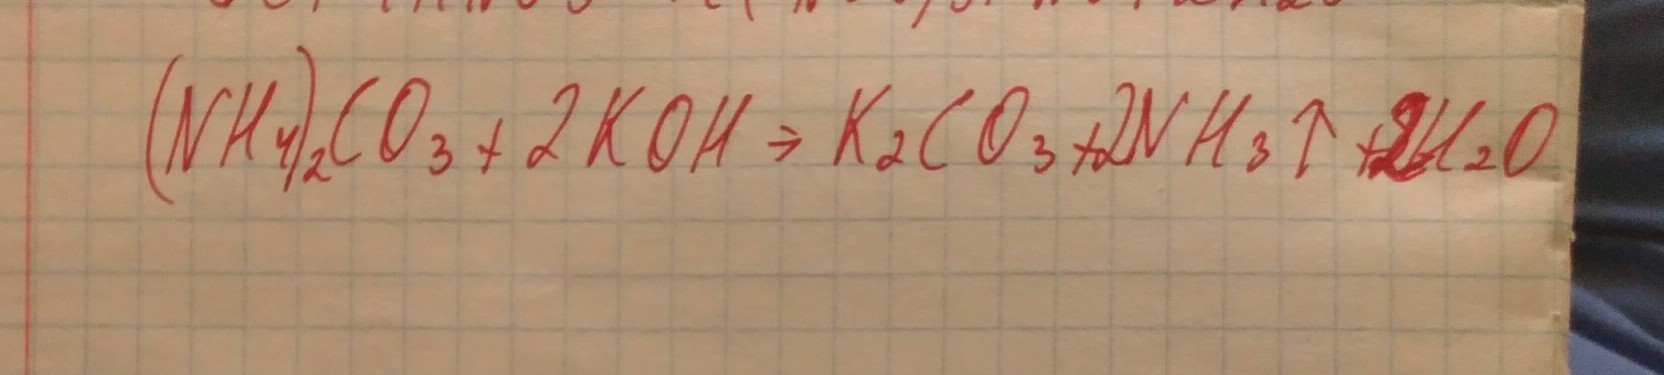 (NH4)2CO3 + 2KOH → K2CO3 + 2NH3↑ + 2H2O